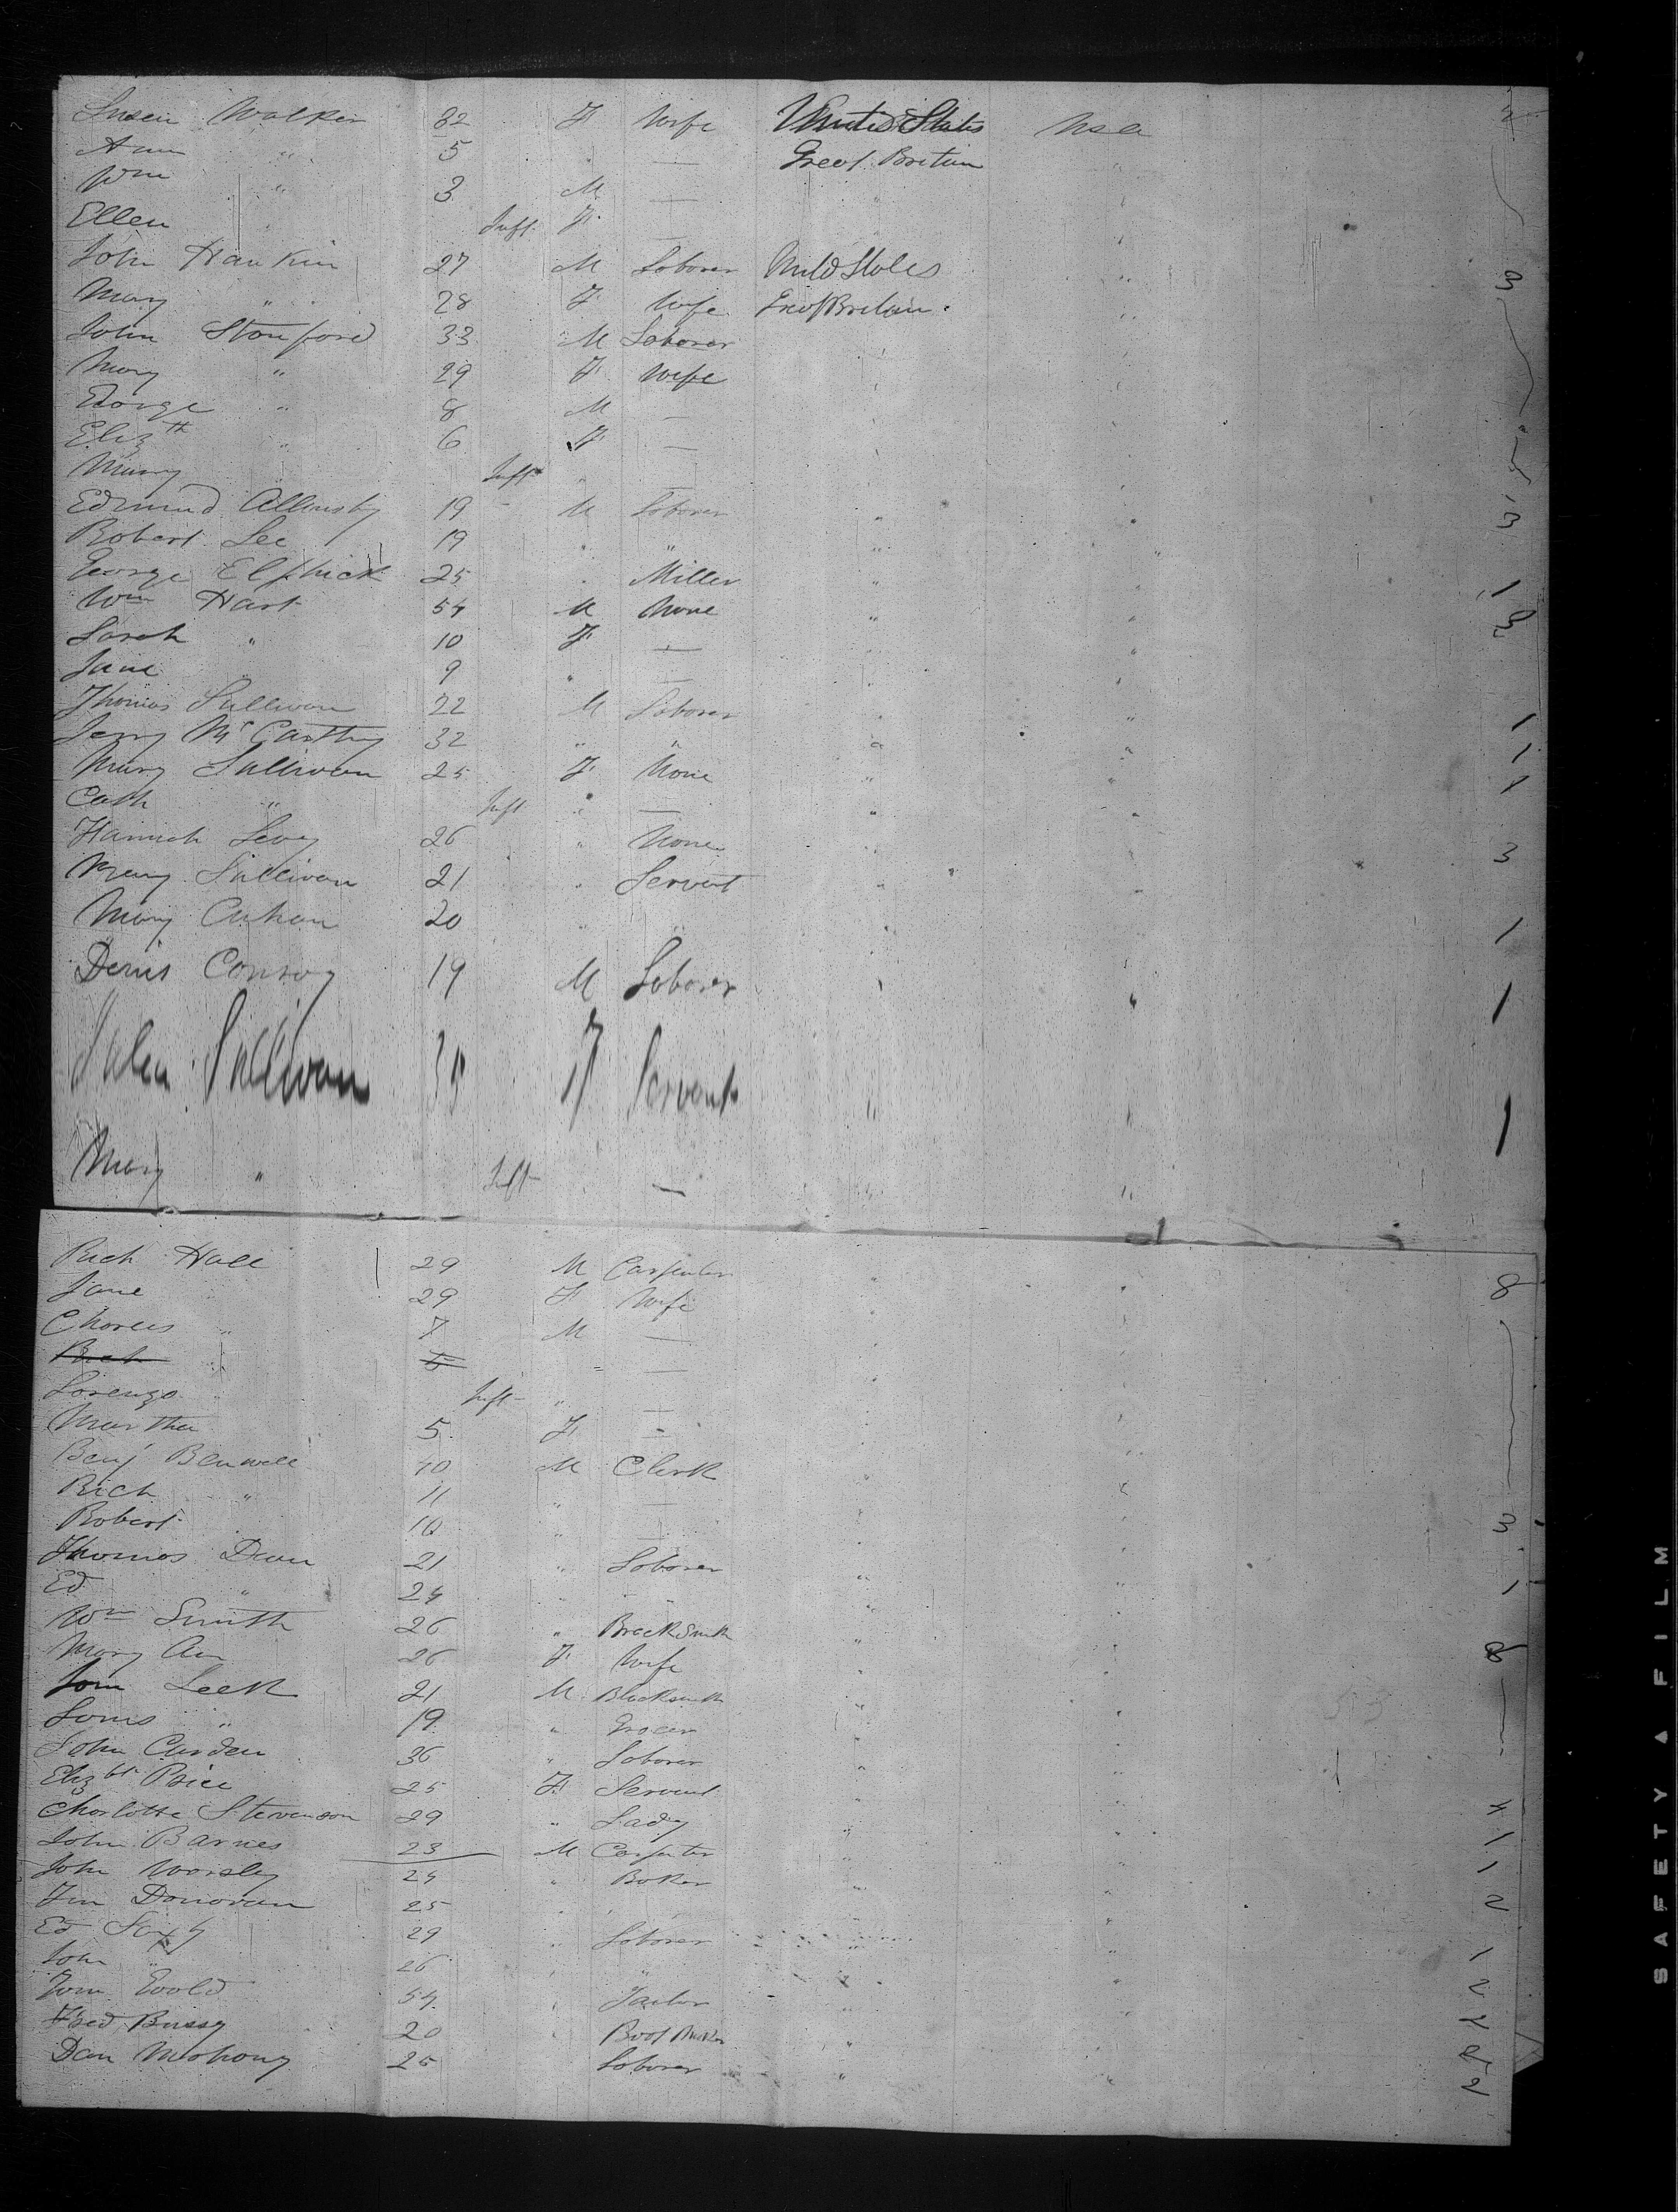 Susan Walker 32 F Wife United States USA 2
Ann " 5 " — Great Britain "
Wm " 3 M — " "
Ellen " Inft F — "
John Hankin 27 M Laborer Unitd States " 3
Mary " 28 F Wife Great Britain "
John Stanford 33 M Laborer " "
Mary " 29 F Wife " "
George " 8 M — "
Eliz th " 6 F — "
Inft " —
Edmund Allinsby 19 M Laborer " " 3
Robert Lee 19 " " " "
George Elphick 25 " Miller " " 1
Wm Hart 54 M None " " 3
Sarah " 10 F — " "
Jane " 9 " — "
Thomas Sullivan 22 M Laborer " " 1
Jerry McCarthy 32 " " " " 1
Mary Sullivan 25 F None " " 1
Cath " Inft " — " "
Hannah Levy 26 " None " " 3
Mary Sullivan 21 " Servant " "
Mary 20 " " " " 1
Denis Conroy 19 M Laborer " " 1
Sullivan 35 F Servant " " 1
Mary " Inft — " "
Rich Hall 29 M Carpenter " " 8
Jane 29 F Wife "
Charles " 7 M — "
Rich " 5 " —
Lorenzo " Inft " —
Martha 5 F - "
Benj Benwell 40 M Clerk " "
Rich " 11 " — "
Robert 10 " — 3
Thomas Dean 21 " Laborer " "
Ed " 24 " " " 1
Wm Smith 26 " Blacksmith " "
Mary Ann 26 F Wife " " 8
John Leek 21 M Blacksmith " "
Louis " 19 " Grocer " "
John Carden 36 " Laborer " "
Elizbth Price 25 F Servant " "
Charlotte Stevenson 29 " Lady " " 4
John Barnes 23 M Carpenter " " 1
John Worsley 24 " Baker " " 1
Jim Donovan 25 " " " 2
Ed 29 " Laborer " "
John " 26 " " " 1
Tom Ewold 54 " Tailor " " 2
Fred Bussy 20 " Boot Maker " "
Dan Mahony 25 Laborer " " 2
SAFETY ▲ FILM